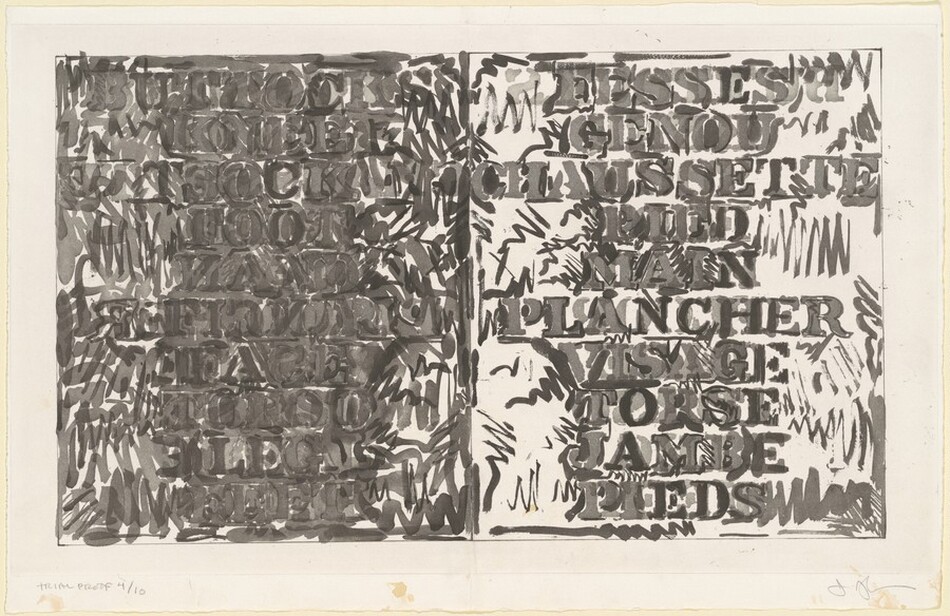 BUTTOCKS
KNEE
SOCK
FOOT
HAND
FLOOR
FACE
TORSO
LEG
FEET
FESSES
GENOU
CHAUSSETTE
PIED
MAIN
PLANCHER
VISAGE
TORSE
JAMBE
PIEDS
TRIAL PROOF 4/10